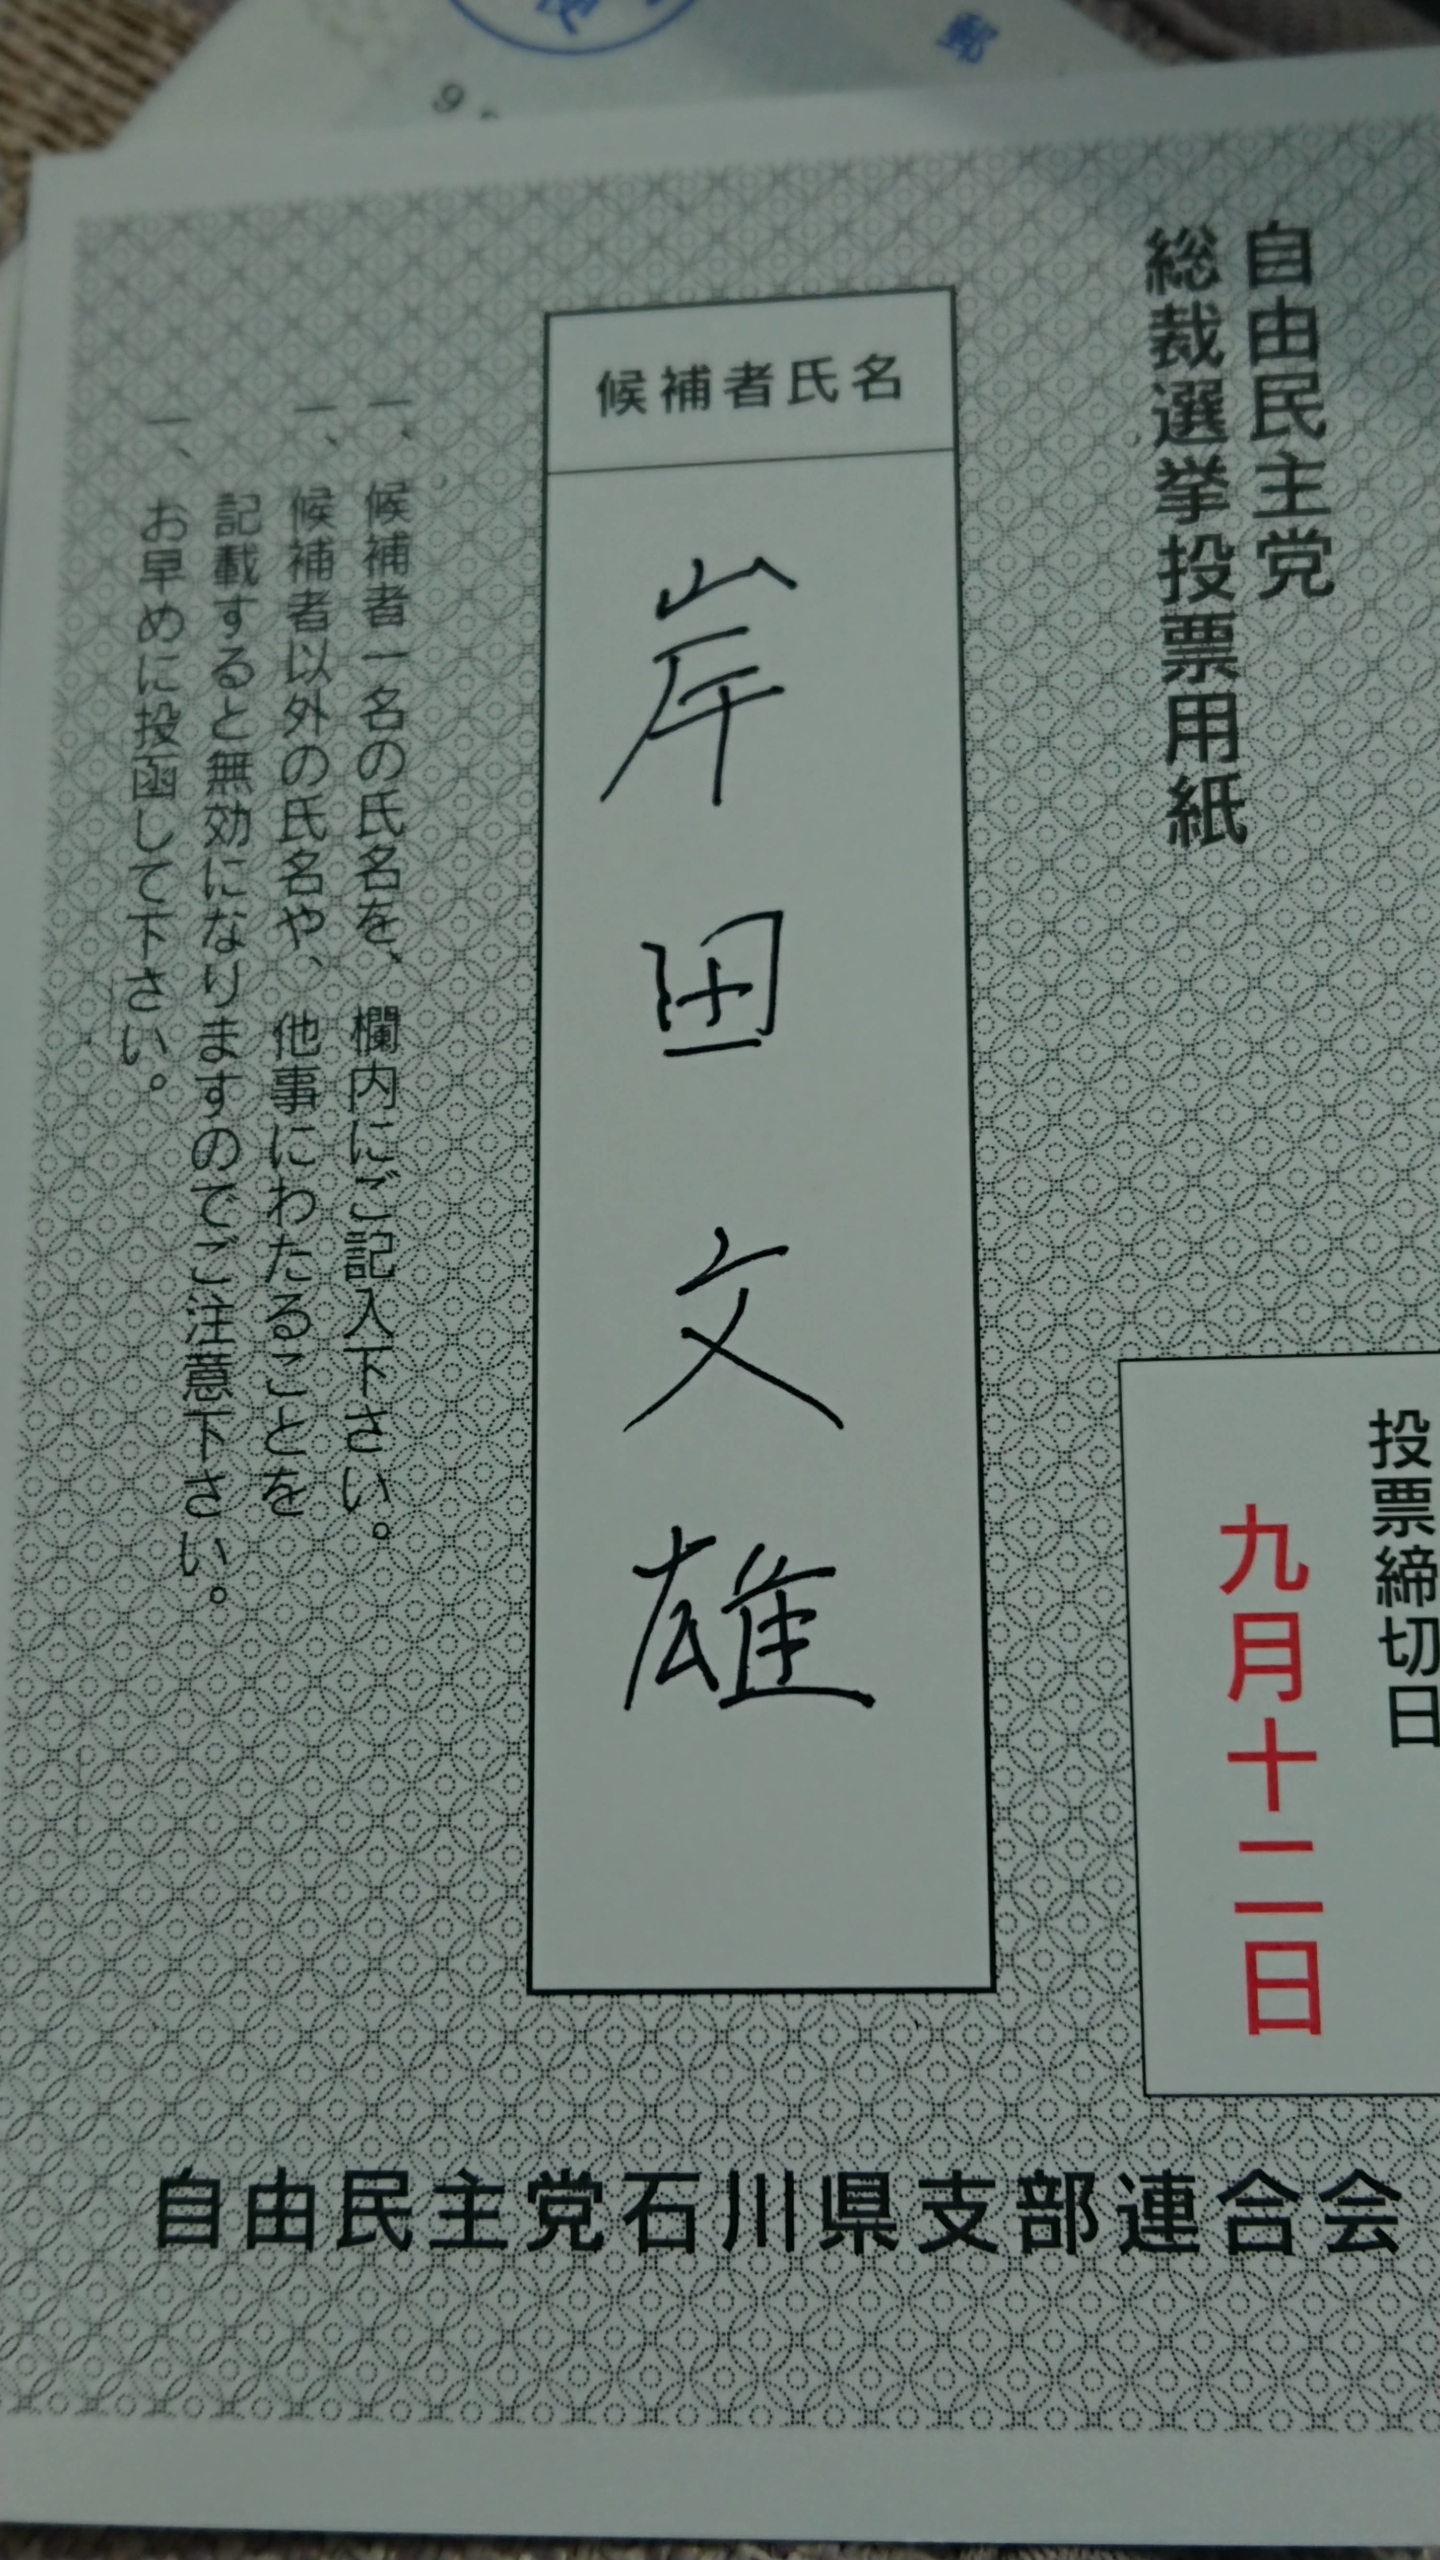 自由民主党
総裁選挙投票用紙
投票締切日
九月十二日
候補者氏名
岸田文雄
一、候補者一名の氏名を、欄内にご記入下さい。
一、候補者以外の氏名や、他事にわたることを
記載すると無効になりますのでご注意下さい。
一、お早めに投函して下さい。
自由民主党石川県支部連合会
郵
9